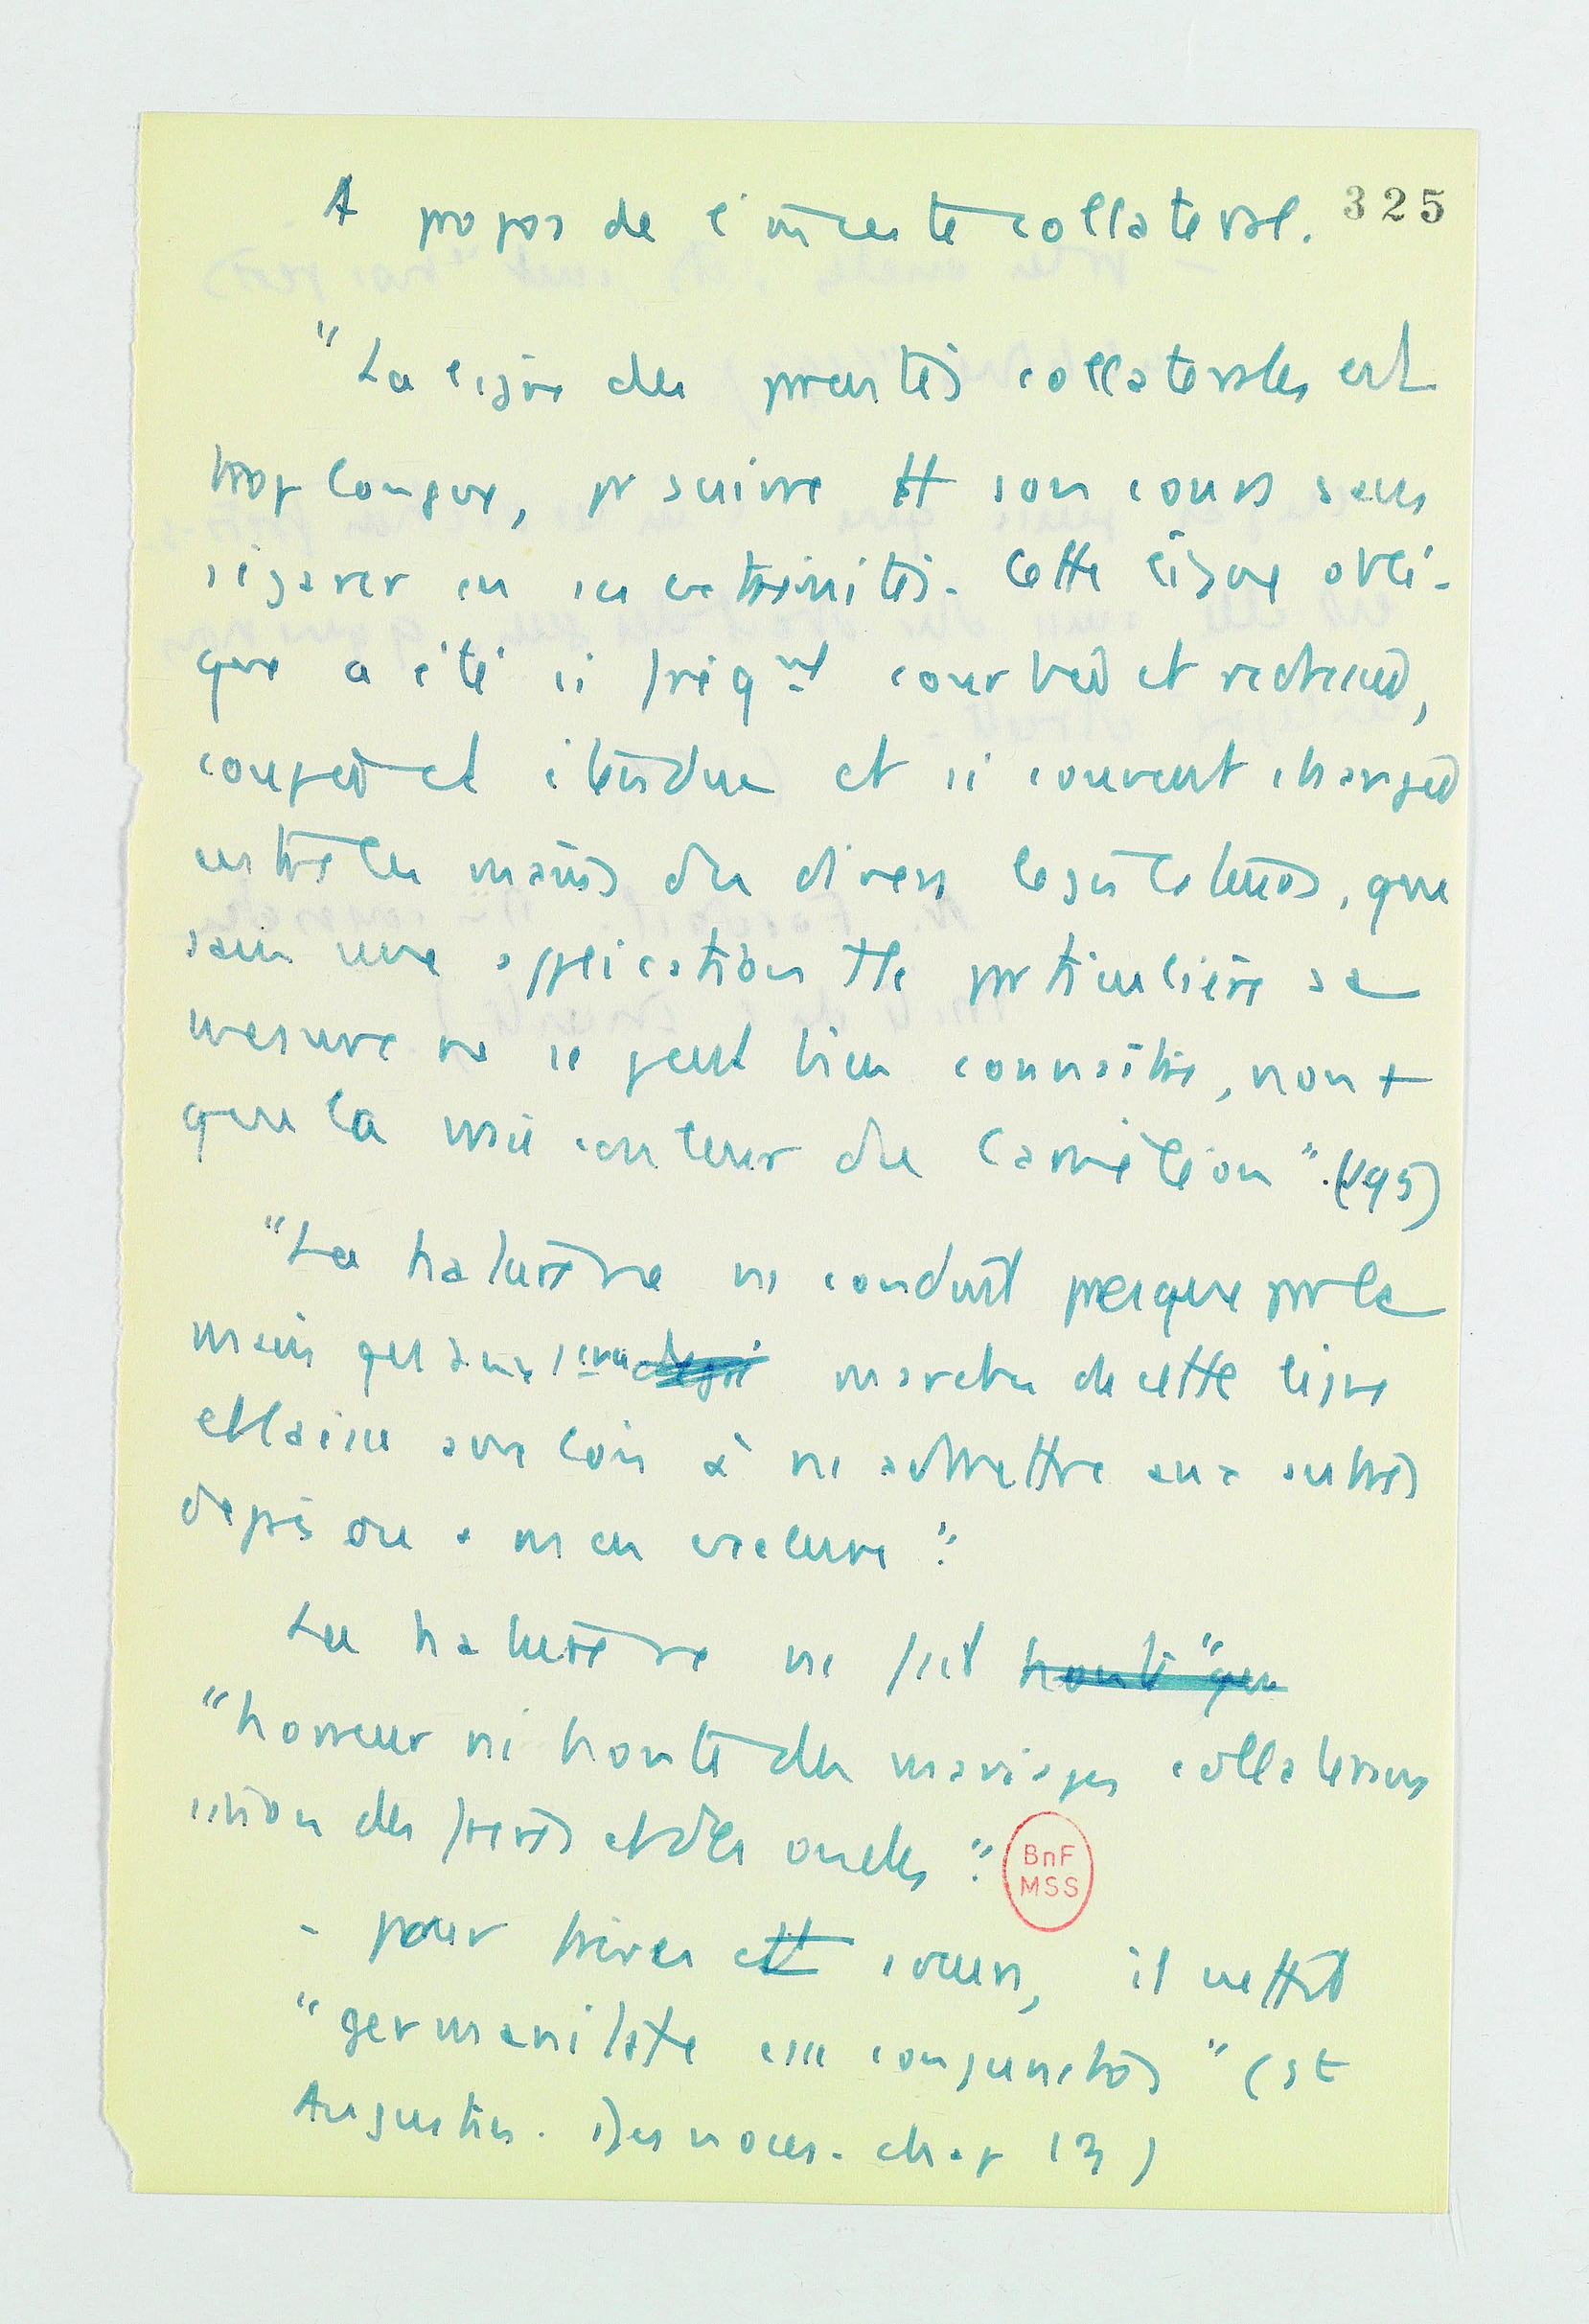 A propos de l'inceste collatéral. 325
"La ligne des parentés collatérales est
trop longue, pr suivre tt son cours sans
s'égarer en ses extrémités. Cette ligne obli-
que a été si fréqmt courbée et redressée,
coupée et étendue et si souvent changée
entre les mains des divers législateurs, que
sans une application tte particulière sa
mesure ne se peut bien connaître, non +
que la vraie couleur du caméléon". (195)
"La nature ne ns conduit presque pr la
main qu'aux 1ères marches de cette ligne
et laisse aux lois à ns admettre aux autres
degrés ou à ns en exclure".
La nature ne ns fait honte "que
"horreur ni honte des mariages collatéraux
sinon des frères et des oncles".
BnF
MSS
- pour frères et sœurs, il mettrait
"germanitate conjunctos" (St
Augustin. Des noces. chap 13)